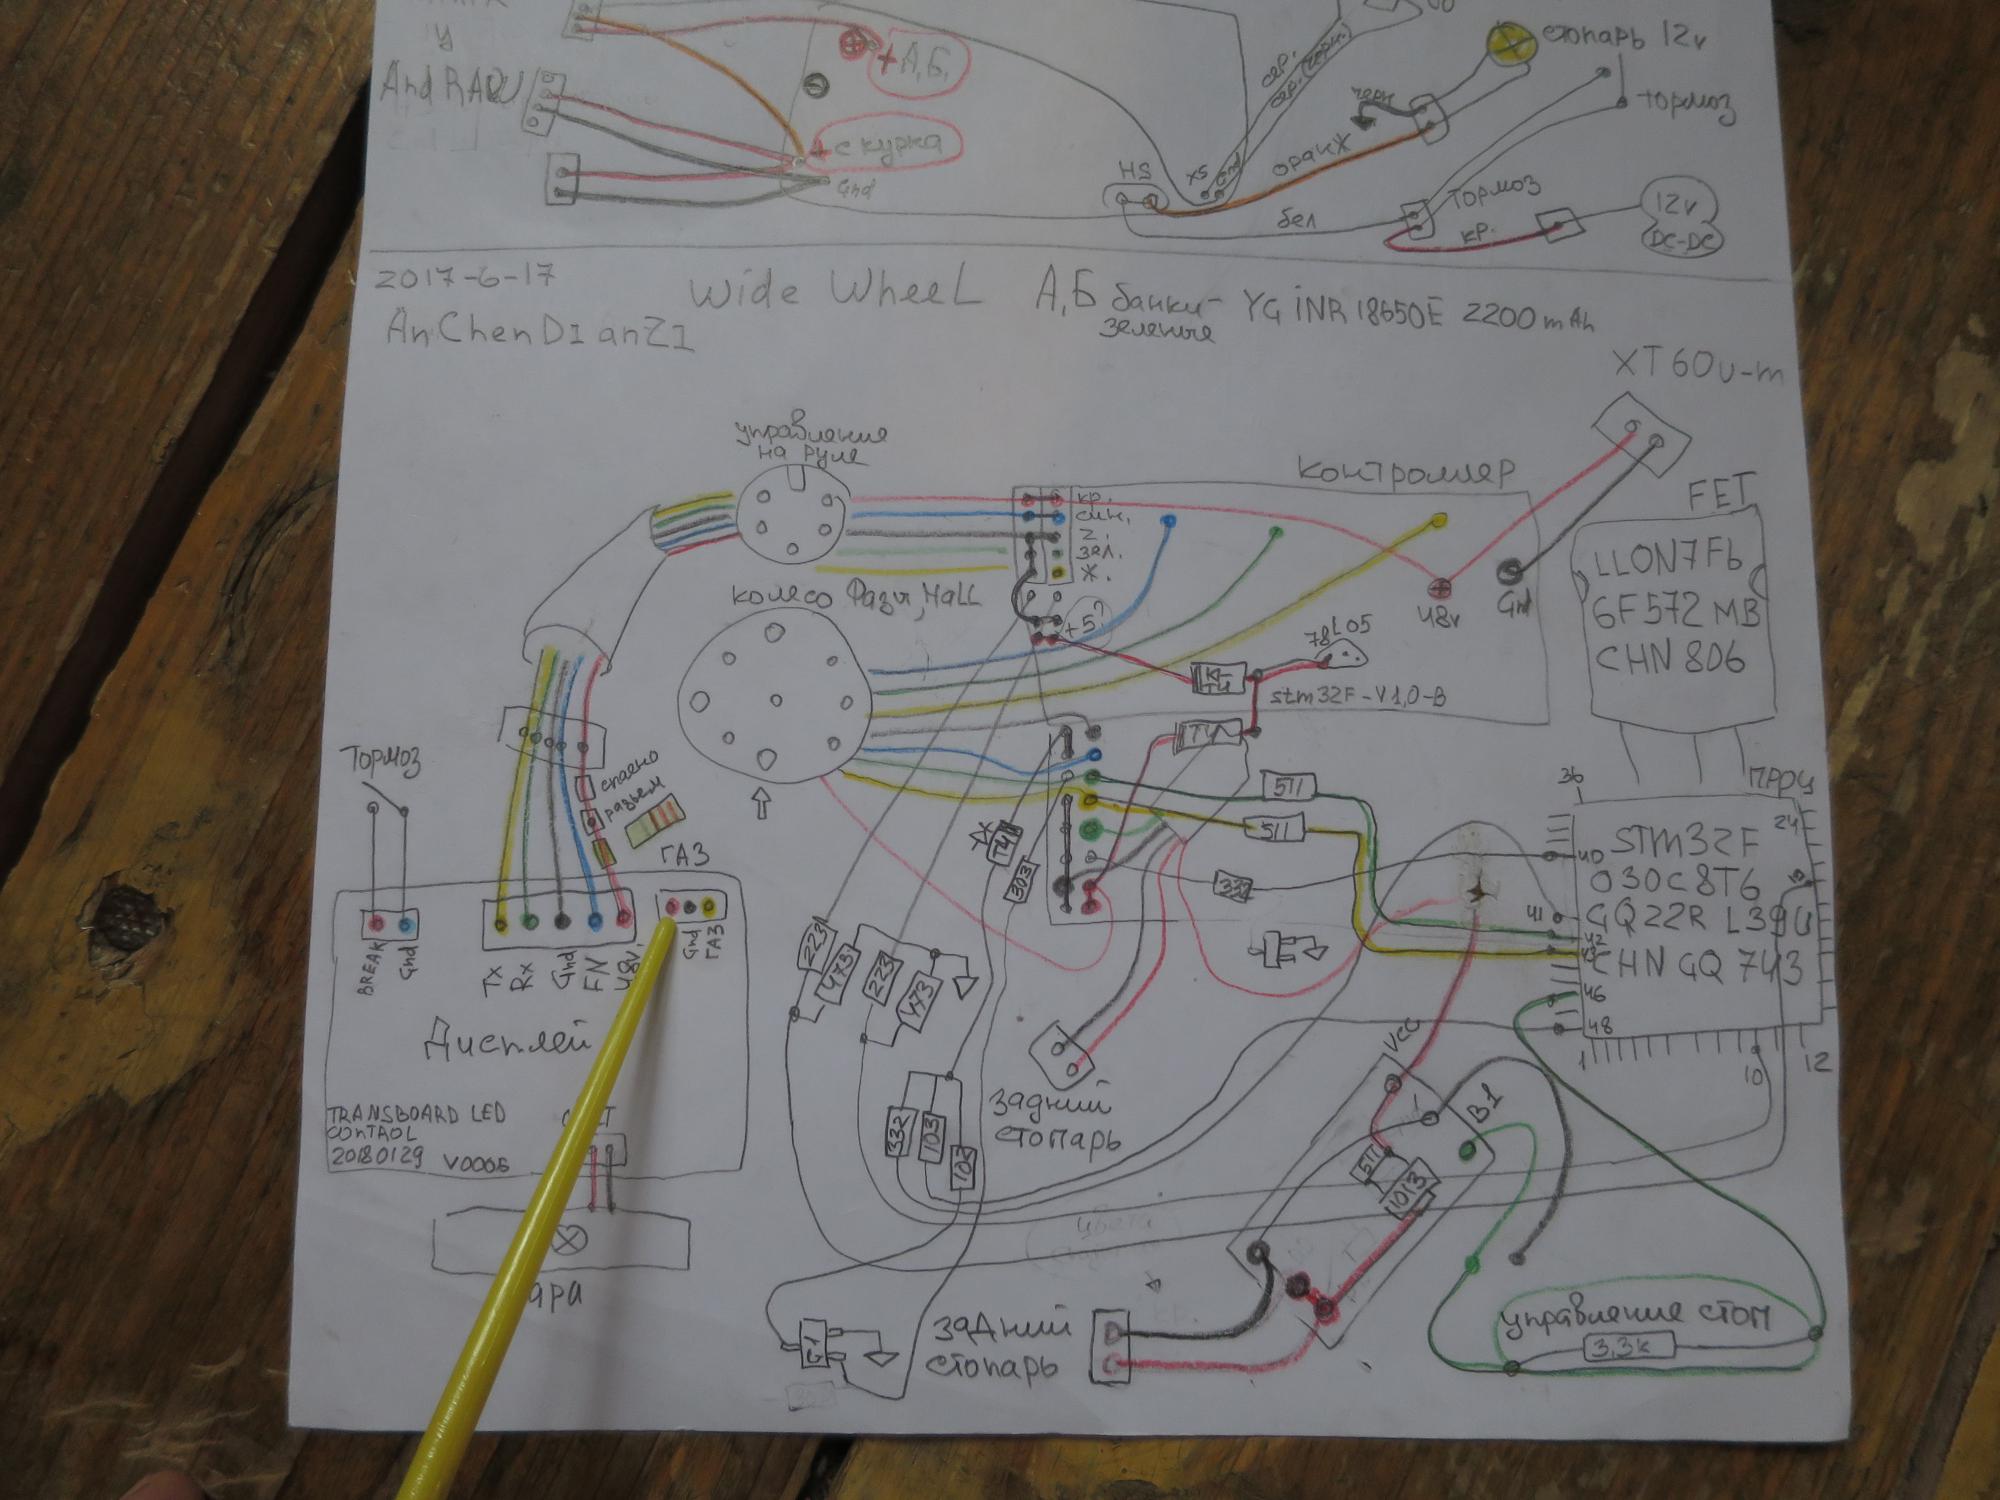 У
And RADU
+ А,Б,
+ с курка
Gnd
сер.
сер. (черн.)
стопарь 12v
тормоз
черн
оранж
HS
x5
Gnd
бел
Тормоз
кр.
12v
DC-DC
2017-6-17
AnChenDIanZI
Wide WheeL
А,Б банки - YG iNR 18650E 2200 mAh
зеленые
XT60u-m
управление
на руле
кр.
син.
z.
зел.
ж.
+5?
контроллер
48v
Gnd
FET
LLON7F6
6F572 MB
CHN 806
колесо Фазы, HaLL
78L05
stm32F-V1,0-B
Тормоз
спаено
разьем
ГАЗ
BREAK
Gnd
Tx
Rx
Gnd
FN
48v
Gnd
ГАЗ
Дисплей
TRANSBOARD LED
CONTROL
20180129 V0005
T4
303
511
511
332
223
473
223
473
332
103
102
проц
36
24
STM32F
030C8T6
GQ22R L39U
CHN GQ 743
40
41
42
43
46
48
13
1
10
12
задний
стопарь
VCC
B1
511
1013
цвета
G1
задний
стопарь
управление стоп
3,3к